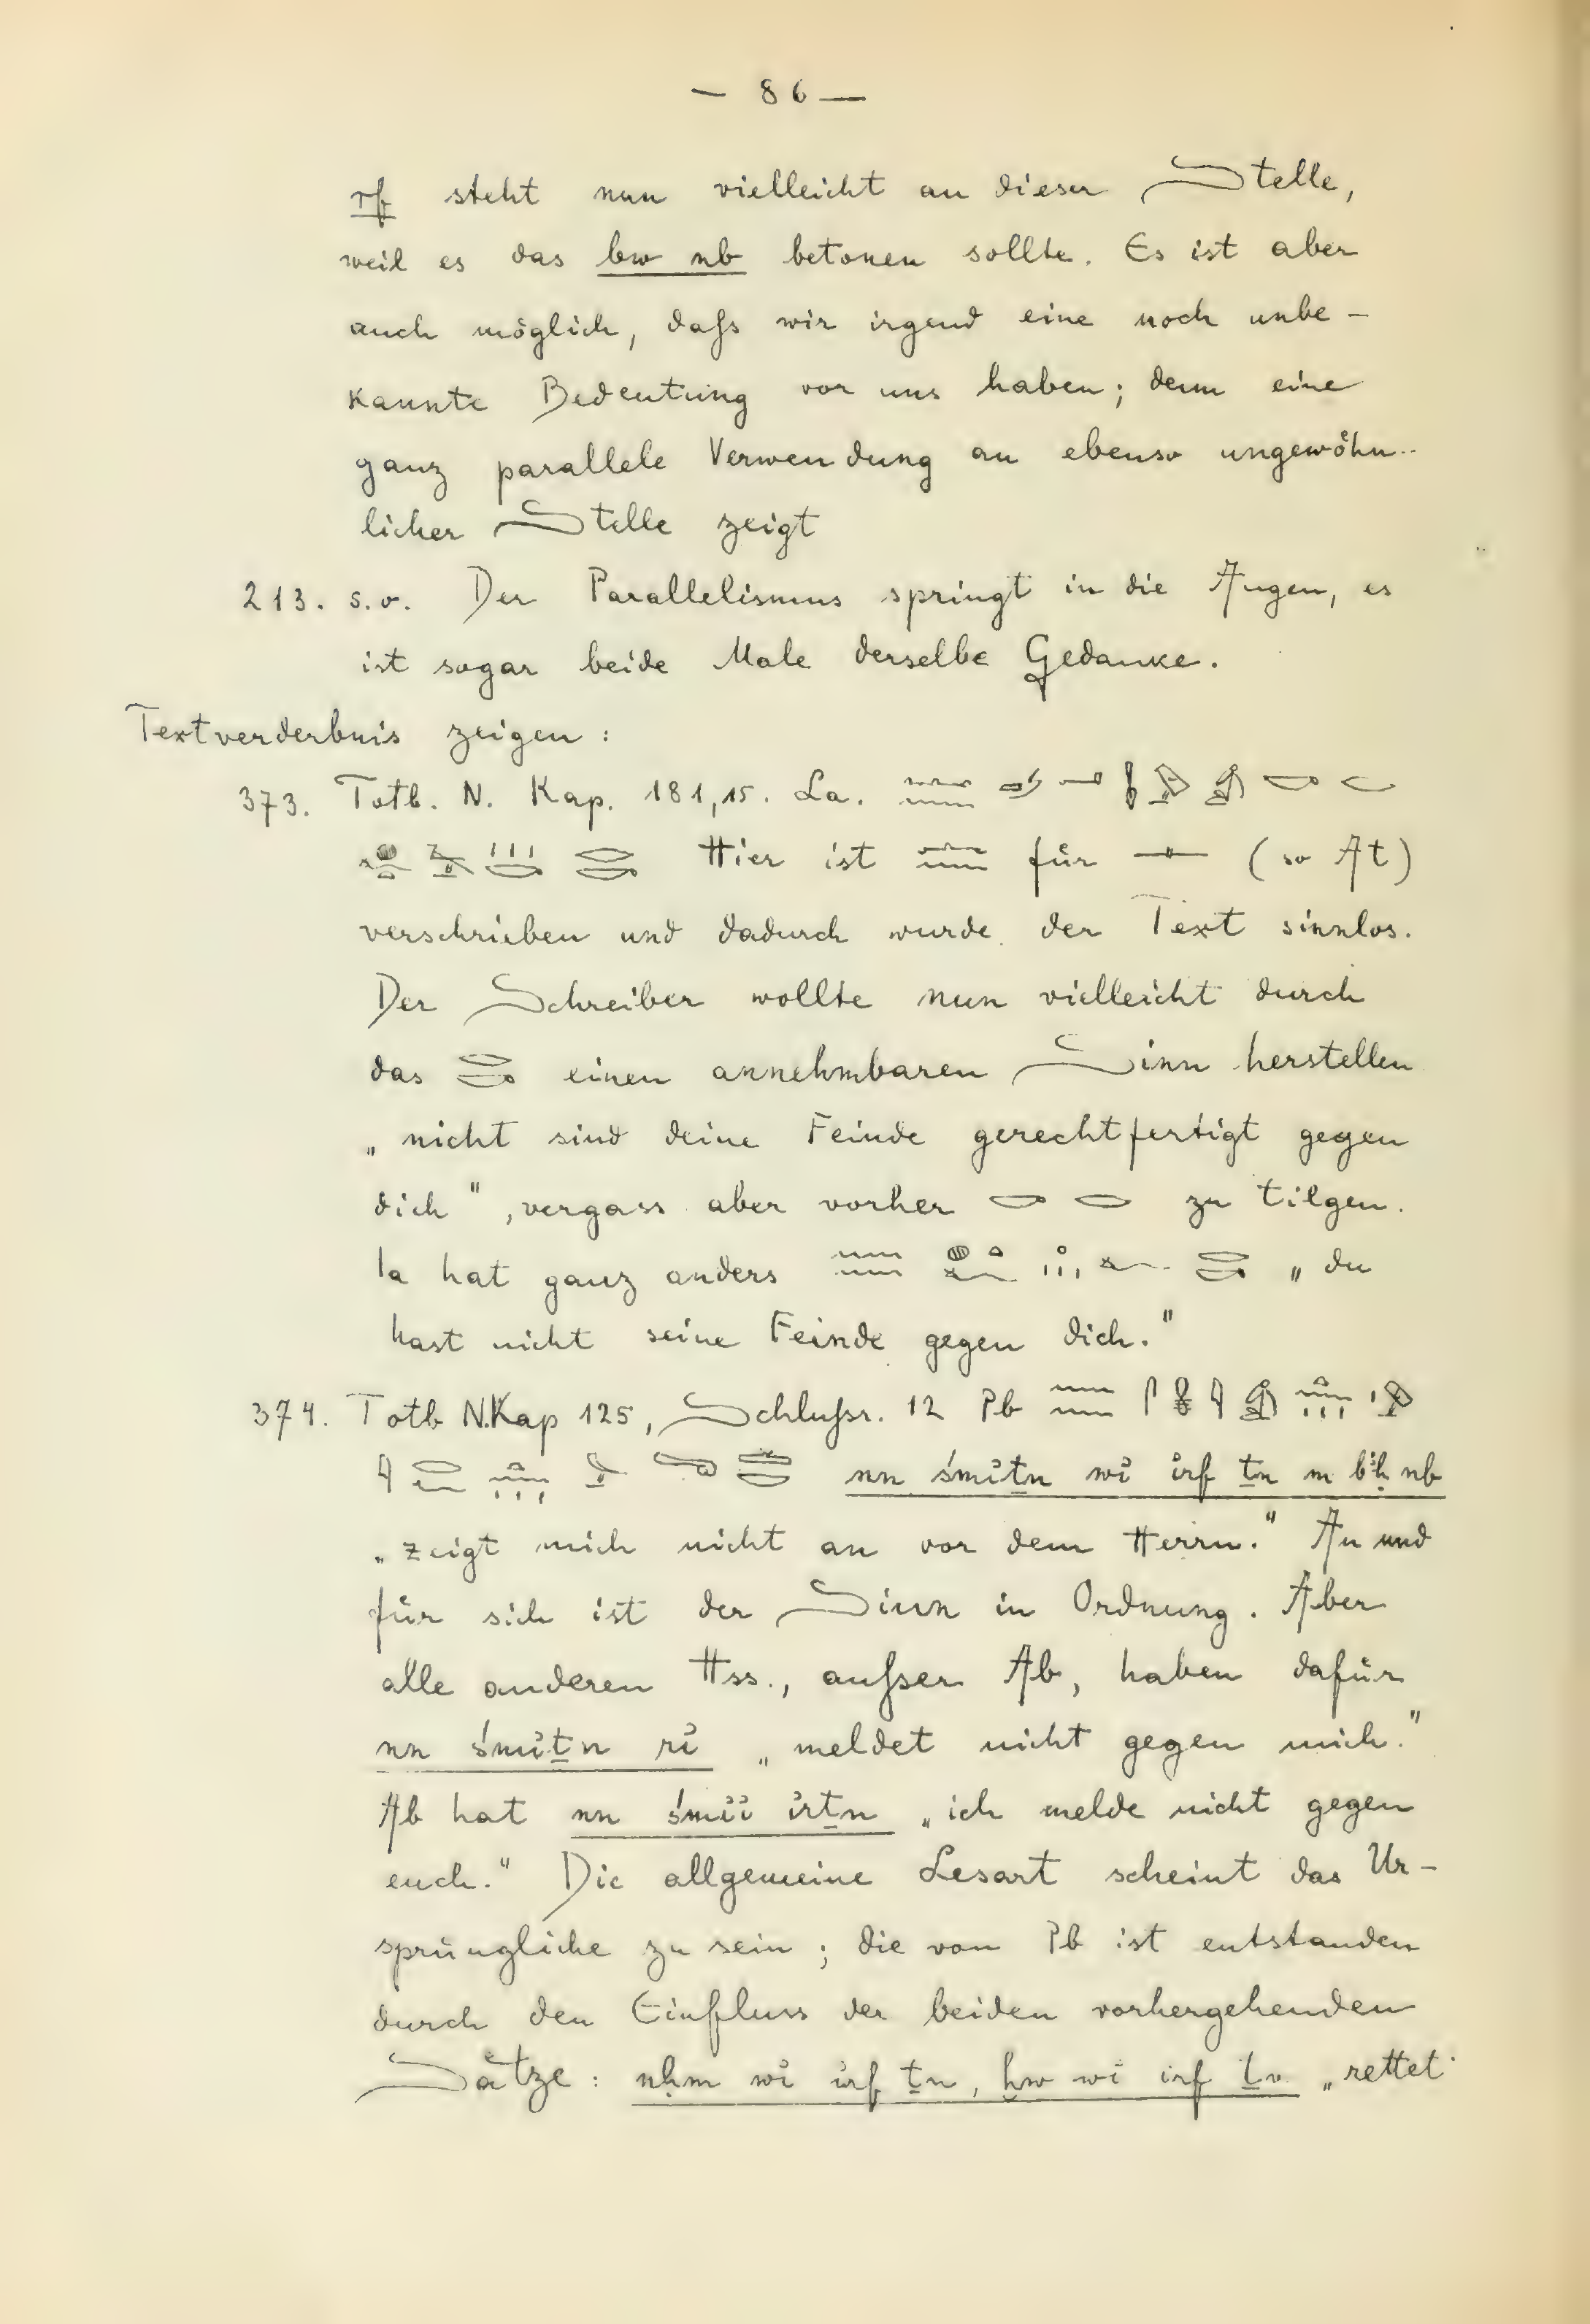 — 86 —
rf steht nun vielleicht an dieser Stelle,
weil es das bw nb betonen sollte. Es ist aber
auch möglich, dafs wir irgend eine noch unbe-
kannte Bedeutung vor uns haben; denn eine
ganz parallele Verwendung an ebenso ungewöhn-
licher Stelle zeigt
213. s.o. Der Parallelismus springt in die Augen, es
ist sogar beide Male derselbe Gedanke.
Textverderbnis zeigen:
373. Totb. N. Kap. 181,15. La.
Hier ist für (so At)
verschrieben und dadurch wurde der Text sinnlos.
Der Schreiber wollte nun vielleicht durch
das einen annehmbaren Sinn herstellen
„nicht sind deine Feinde gerechtfertigt gegen
dich", vergass aber vorher zu tilgen.
Ia hat ganz anders „du
hast nicht seine Feinde gegen dich."
374. Totb N.Kap 125, Schlufsr. 12 Pb
nn śmỉṯn wỉ ỉrf ṯn m bꜣḥ nb
„zeigt mich nicht an vor dem Herrn." An und
für sich ist der Sinn in Ordnung. Aber
alle anderen Hss., aufser Ab, haben dafür
nn śmỉṯn rỉ „meldet nicht gegen mich."
Ab hat nn śmỉỉ ỉrṯn „ich melde nicht gegen
euch." Die allgemeine Lesart scheint das Ur-
sprüngliche zu sein; die von Pb ist entstanden
durch den Einfluss der beiden vorhergehenden
Sätze: nḥm wỉ ỉrf ṯn, ḫw wỉ ỉrf ṯn „rettet